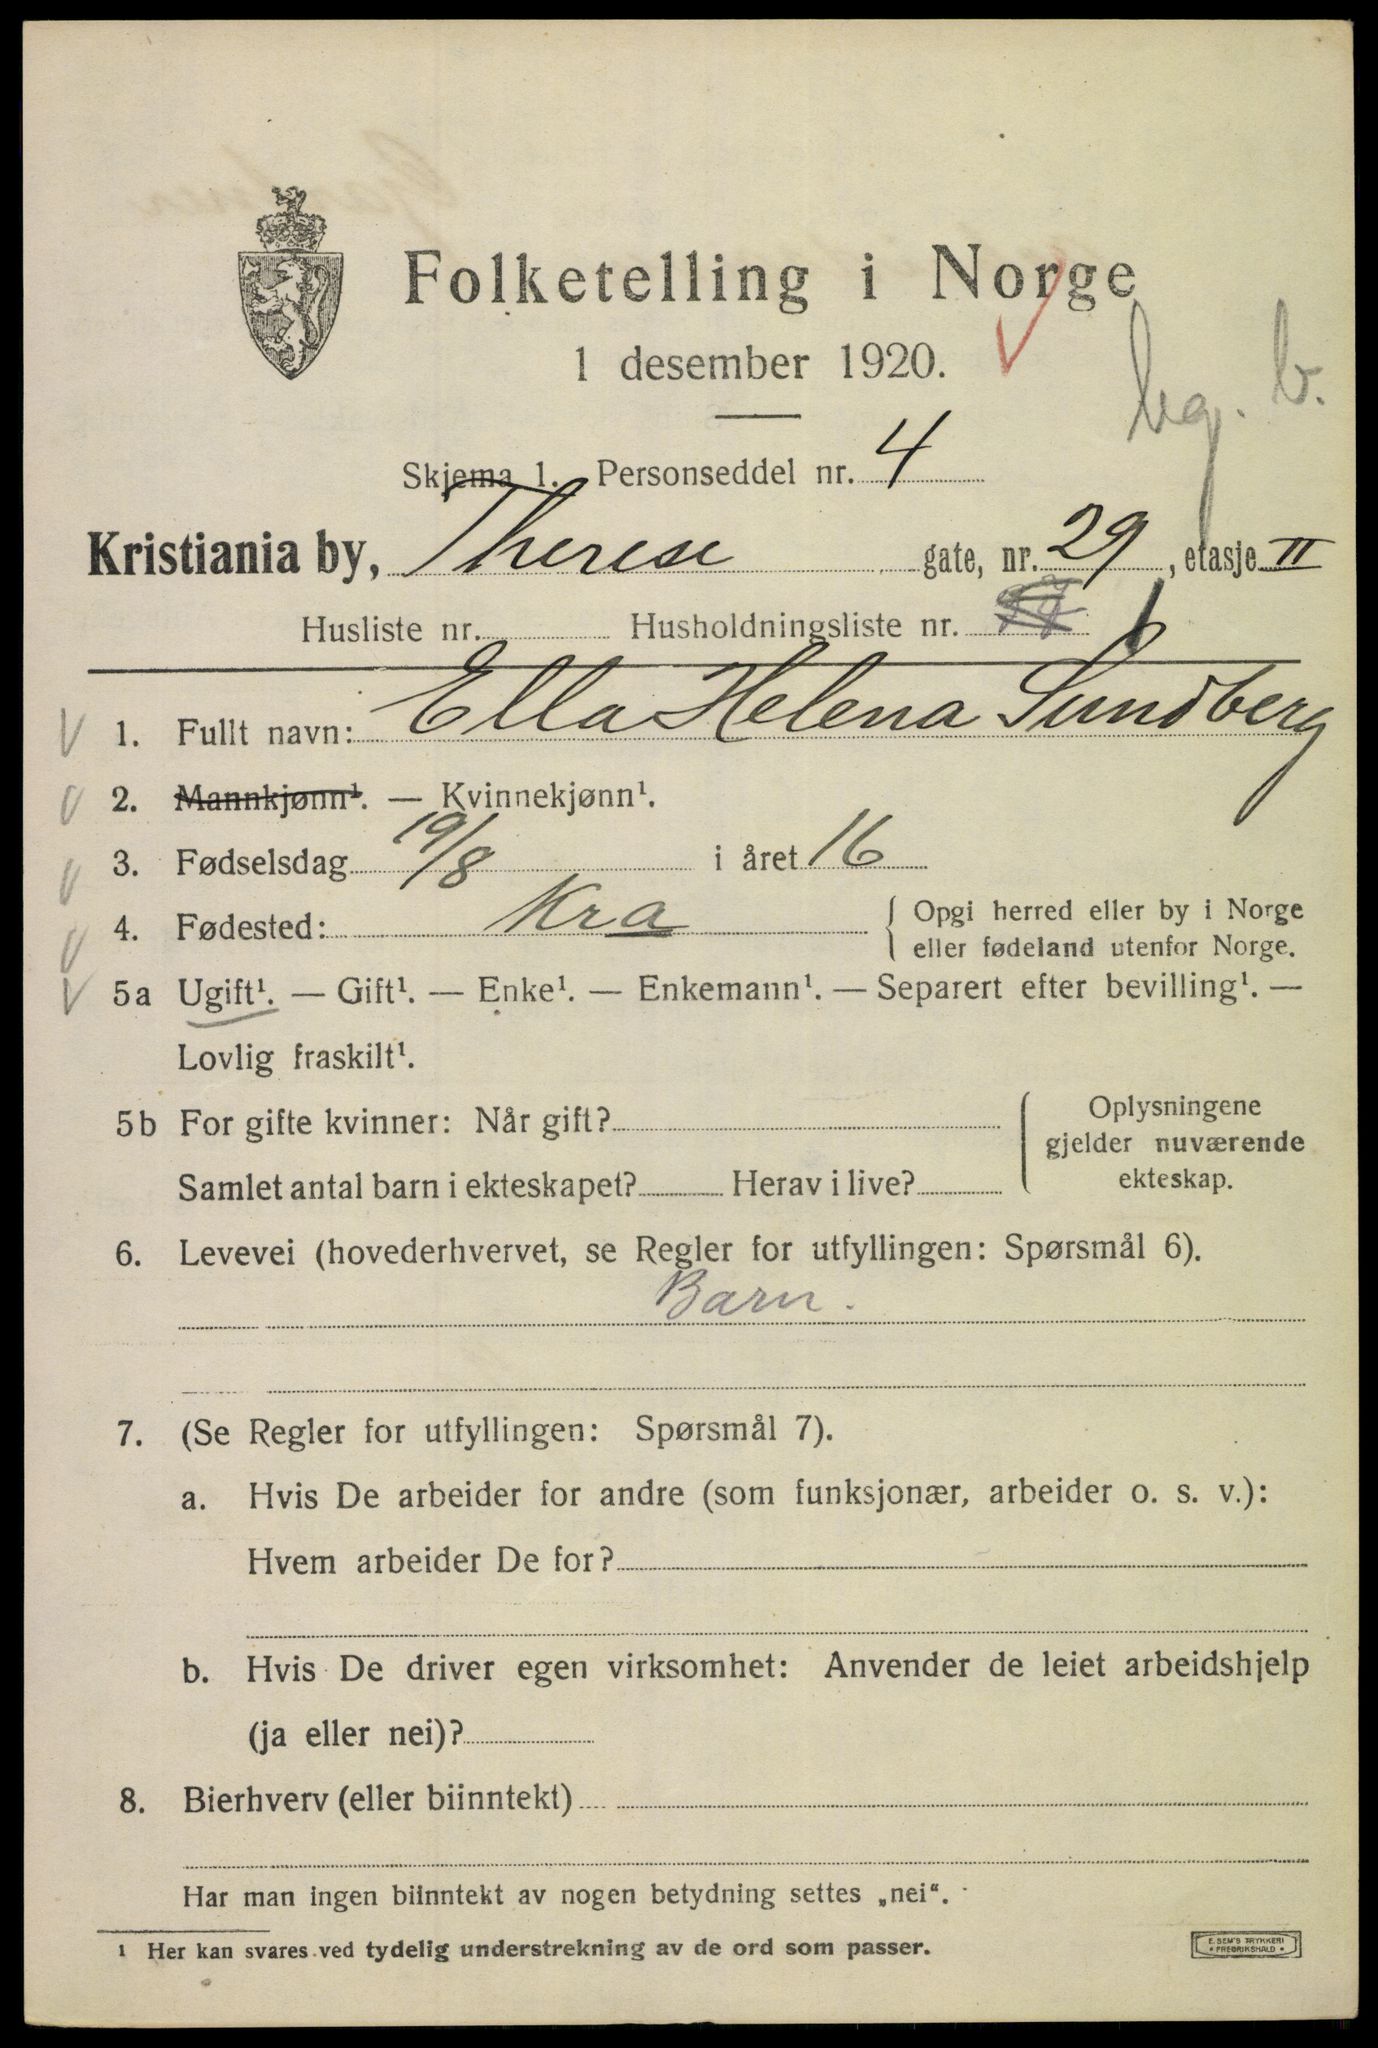 Folketelling i Norge
1 desember 1920.
bg. b.
Skjema 1. Personseddel nr. 4
Kristiania by, Therese gate, nr. 29, etasje II
Husliste nr. Husholdningsliste nr. 1
1. Fullt navn: Ella Helena Sundberg
2. Mannkjønn¹. — Kvinnekjønn¹.
3. Fødselsdag 19/8 i året 16
4. Fødested: Kra { Opgi herred eller by i Norge
eller fødeland utenfor Norge.
5a Ugift¹. — Gift¹. — Enke¹. — Enkemann¹. — Separert efter bevilling¹. —
Lovlig fraskilt¹.
5b For gifte kvinner: Når gift?
Samlet antal barn i ekteskapet? Herav i live?
Oplysningene
gjelder nuværende
ekteskap.
6. Levevei (hovederhvervet, se Regler for utfyllingen: Spørsmål 6).
Barn.
7. (Se Regler for utfyllingen: Spørsmål 7).
a. Hvis De arbeider for andre (som funksjonær, arbeider o. s. v.):
Hvem arbeider De for?
b. Hvis De driver egen virksomhet: Anvender de leiet arbeidshjelp
(ja eller nei)?
8. Bierhverv (eller biinntekt)
Har man ingen biinntekt av nogen betydning settes „nei“.
¹ Her kan svares ved tydelig understrekning av de ord som passer.
E. SEM'S TRYKKERI
• FREDRIKSHALD •